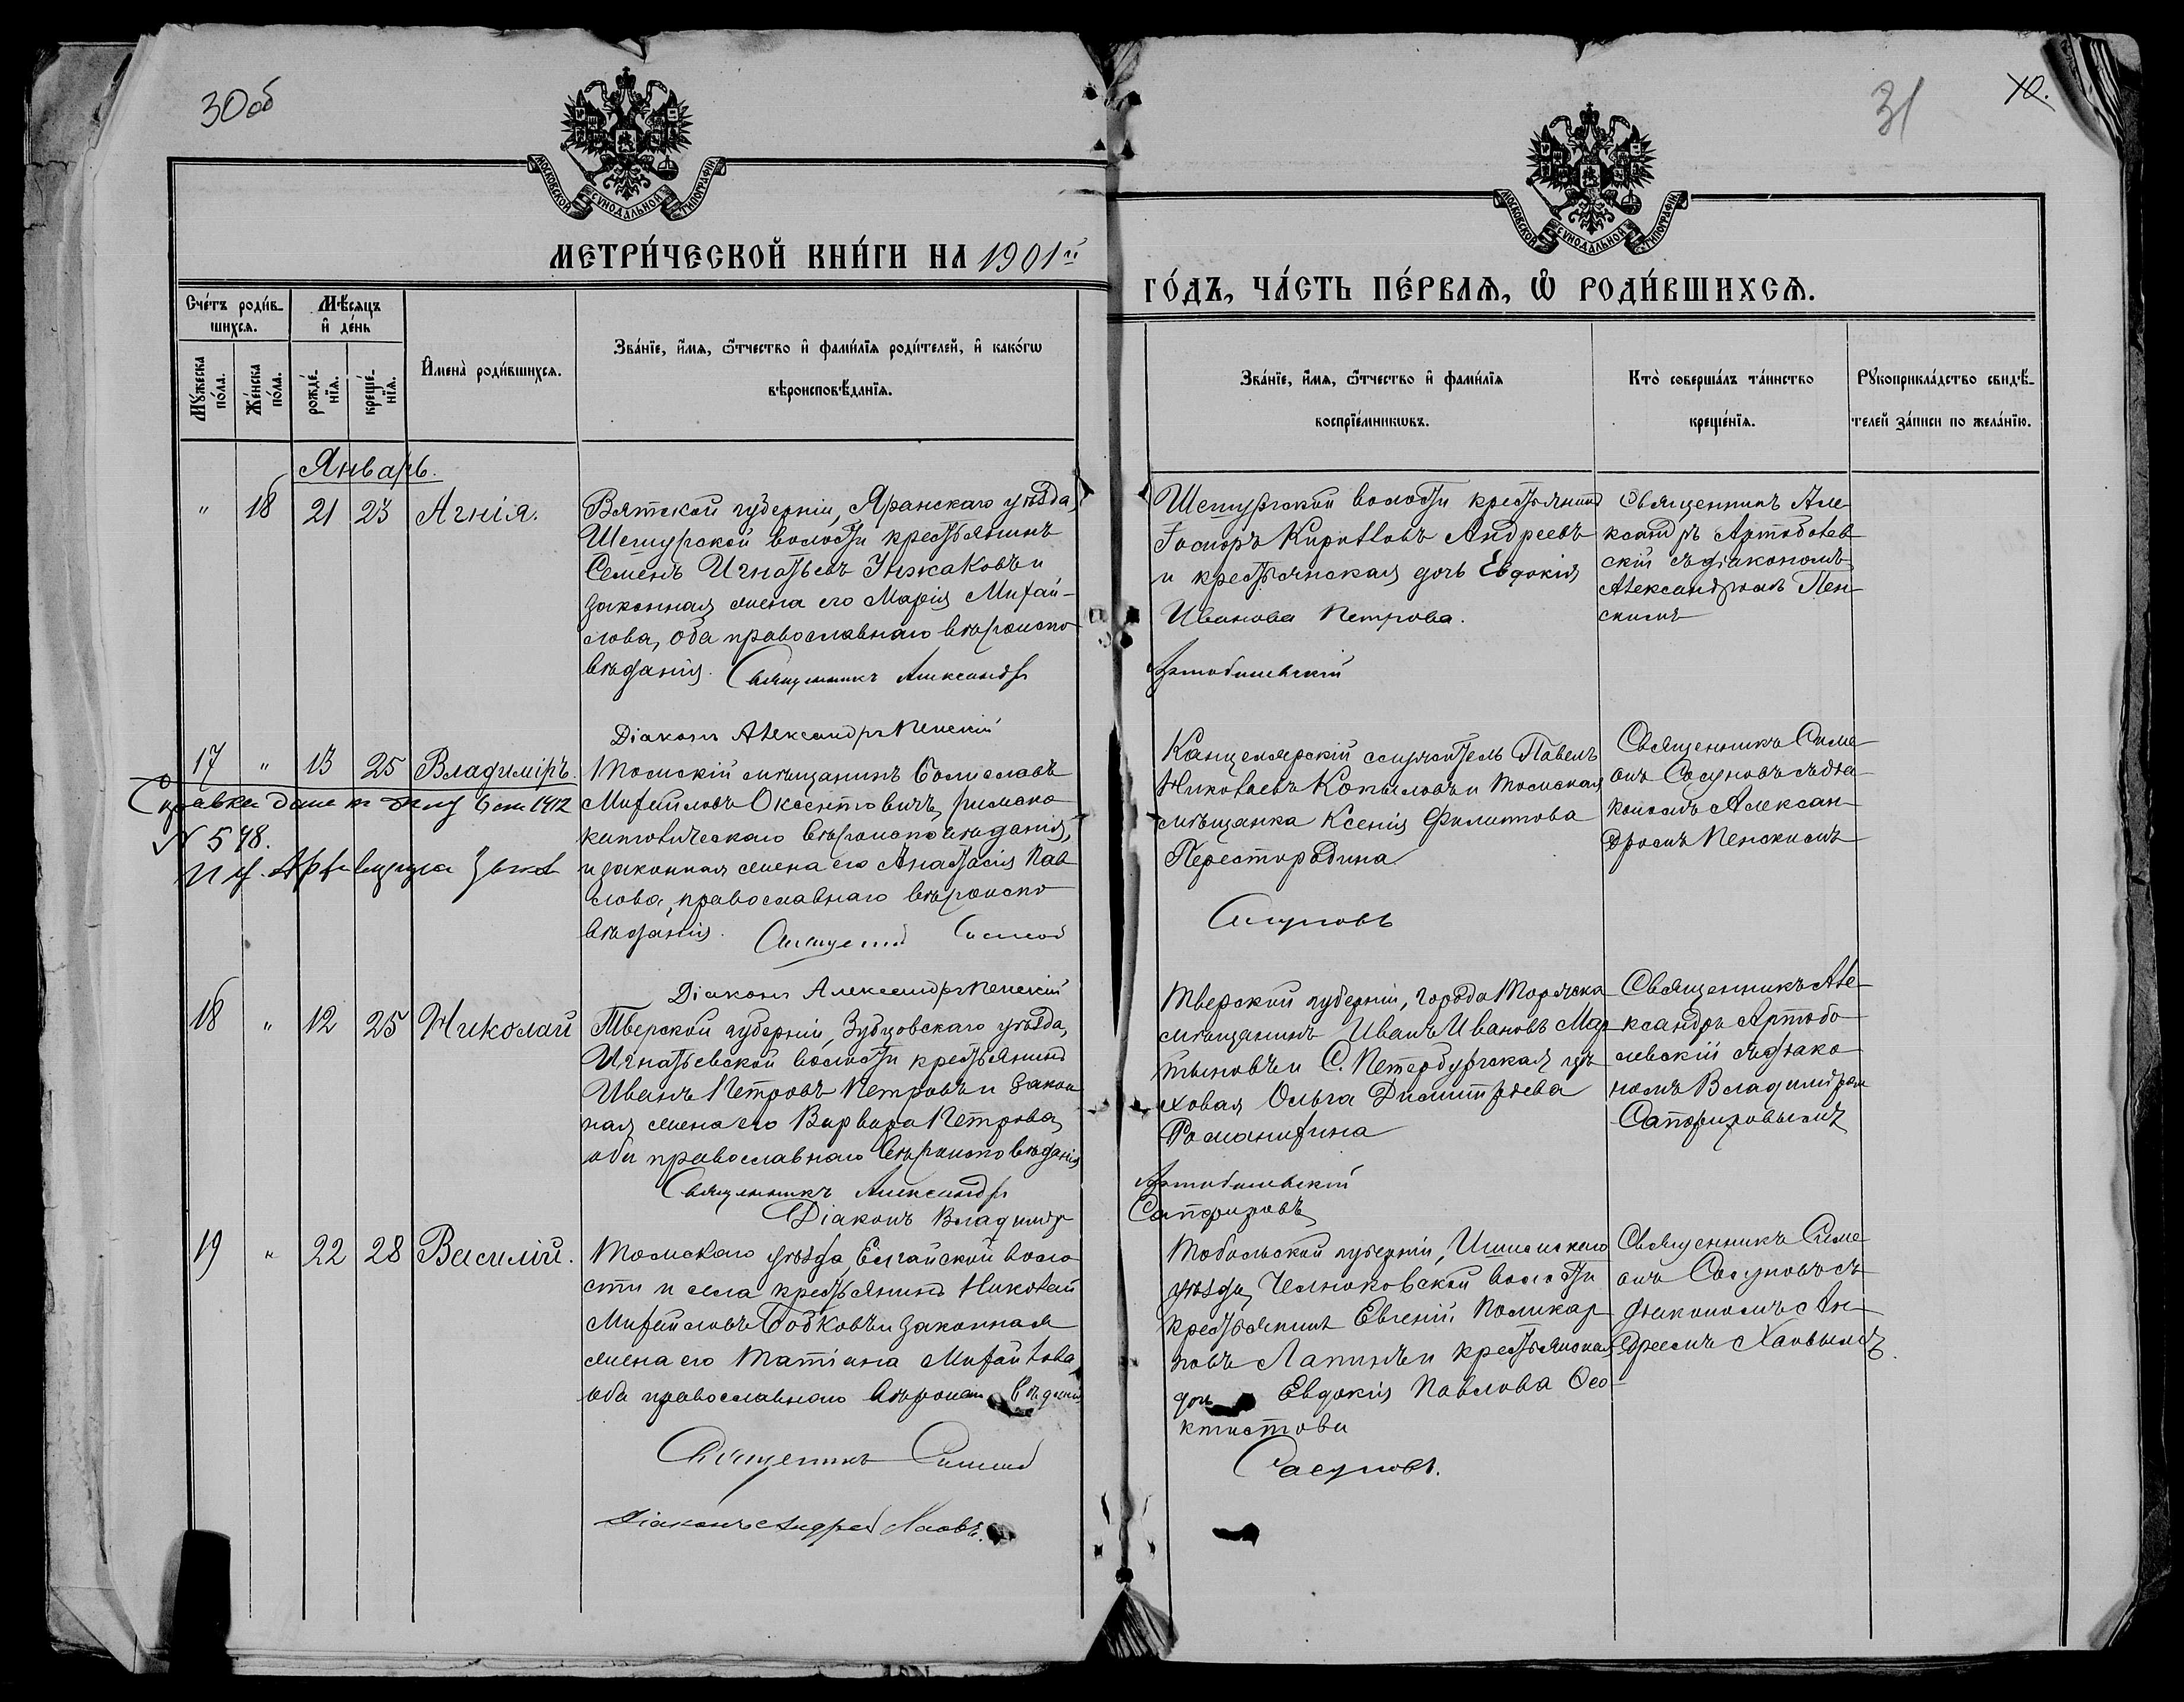 30об
31
МОСКОВСКОЙ СѴНОДАЛЬНОЙ ТИПОГРАФІИ
МОСКОВСКОЙ СѴНОДАЛЬНОЙ ТИПОГРАФІИ
МЕТРИ́ЧЕСКОЙ КНИ́ГИ НА 1901й
ГО́ДЪ, ЧА́СТЬ ПЕ́РВАѦ, Ѡ҆ РОДИ́ВШИХСѦ.
Сче́тъ роди́в-
шихсѧ.
Мѣ́сѧцъ
и҆ де́нь
Мꙋ́жеска
по́ла.
Же́нска
по́ла.
рожде́-
нїѧ.
креще́-
нїѧ.
И҆мена̀ роди́вшихсѧ.
Зва́нїе, и҆́мѧ, ѻ҆́тчество и҆ фами́лїѧ роди́телей, и҆ како́гѡ
вѣроисповѣ́данїѧ.
Зва́нїе, и҆́мѧ, ѻ҆́тчество и҆ фами́лїѧ
воспрїе́мникѡвъ.
Кто̀ соверша́лъ та́инство
креще́нїѧ.
Рꙋкоприкла́дство свидѣ́-
телей за́писи по жела́нїю.
Январь.
" 18 21 23 Агнія.
Вятской губерніи, Яранскаго уѣзда,
Шешурской волости крестьянинъ
Семенъ Игнатьевъ Унжаковъ и
законная жена его Марія Михай-
лова, оба православнаго вѣроиспо
вѣданія. Священникъ Александръ
Діаконъ Александръ Пенскій
Шешургской волости крестьянинъ
Киpилловъ Андреевъ
и крестьянская дочь Евдокія
Иванова Петрова.
Артоболевскій
Священникъ Але-
ксандръ Артоболев
скій съ діакономъ
Александромъ Пен-
скимъ
17 " 13 25 Владиміръ.
Справка дана 1912
№ 578.
Томскій мѣщанинъ Болиславъ
Михайловъ Оксентовичъ, римско
католическаго вѣроисповѣданія,
и законная жена его Анастасія Пав
лова, православнаго вѣроиспо
вѣданія. Священникъ Симеонъ
Діаконъ Александръ Пенскій
Канцелярскій служитель Павелъ
Николаевъ Копыловъ и томская
мѣщанка Ксенія Филиппова
Перестородина
Сосуновъ
Священникъ Симе
онъ Сосуновъ съ діа-
кономъ Алексан-
дромъ Пенскимъ
18 " 12 25 Николай
Тверской губерніи, Зубцовскаго уѣзда,
Игнатьевской волости крестьянинъ
Иванъ Петровъ Петровъ и закон
ная жена его Варвара Петрова,
оба православнаго вѣроисповѣданія
Священникъ Александръ
Діаконъ Владиміръ
Тверской губерніи, города Торжка
мѣщанинъ Иванъ Ивановъ Мар
тыновъ и С. Петербургская цѣ
ховая Ольга Димитріева
Романихина
Артоболевскій
Сапфировъ
Священникъ Але-
ксандръ Артобо
левскій съ діако
номъ Владиміромъ
Сапфировымъ
19 " 22 28 Василій.
Томскаго уѣзда, Елгайской воло
сти и села крестьянинъ Николай
Михайловъ Бобковъ и законная
жена его Татіана Михайлова,
оба православнаго
Священникъ Симеонъ
Діаконъ Андрей Хаовъ.
Тобольской губерніи, Ишимскаго
уѣзда, Челноковской волости
крестьянинъ Евгеній Поликар
повъ Лапинъ и крестьянская
дочь Евдокія Павлова Ѳео-
ктистова
Сосуновъ.
Священникъ Симе
онъ Сосуновъ съ
діакономъ Ан-
дреемъ Хаовымъ.